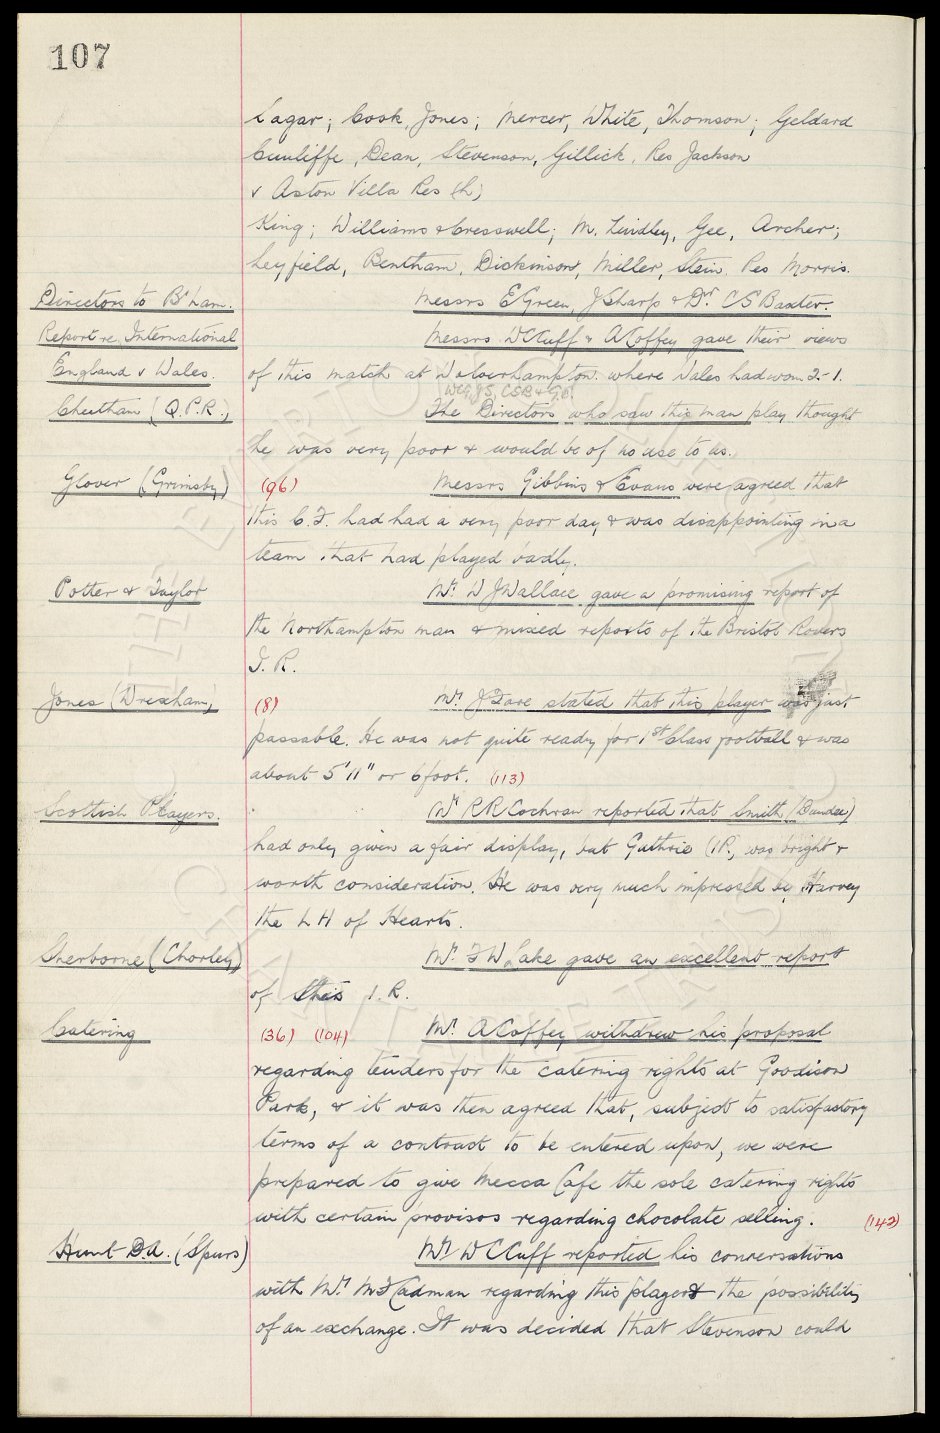 107
Sagar; Cook, Jones; Mercer, White, Thomson; Geldard
Cunliffe, Dean, Stevenson, Gillick. Res Jackson
v Aston Villa Res (h)
King; Williams & Cresswell; M. Lindley, Gee, Archer;
Leyfield, Bentham, Dickinson, Miller, Stein. Res Morris.
Directors to B'ham. Messrs E Green, J Sharp & Dr. C S Baxter.
Report re International Messrs W C Cuff & A Coffey gave their views
England v Wales. of this match at Wolverhampton. where Wales had won 2-1.
WCG, JS, CSB &
Cheetham (Q.P.R.) The Directors who saw this man play thought
he was very poor & would be of no use to us.
Glover (Grimsby) (96) Messrs Gibbins & Evans were agreed that
this C.F. had had a very poor day & was disappointing in a
team that had played badly.
Potter & Taylor Mr. W J Wallace gave a promising report of
the Northampton man & mixed reports of the Bristol Rovers
I. R.
Jones (Wrexham) (8) Mr. J Fare stated that this player was just
passable. He was not quite ready for 1st Class football & was
about 5' 11" or 6 foot. (113)
Scottish Players. Mr R R Cochran reported that Smith (Dundee)
had only given a fair display, but Guthrie (I.R.) was bright &
worth consideration. He was very much impressed by Harvey
the L H of Hearts.
Sherborne (Chorley) Mr. F W Lake gave an excellent report
of this I. R.
Catering (36) (104) Mr. A Coffey withdrew his proposal
regarding tenders for the catering rights at Goodison
Park, & it was then agreed that, subject to satisfactory
terms of a contract to be entered upon, we were
prepared to give Mecca Cafe the sole catering rights
with certain provisos regarding chocolate selling. (142)
Hunt D.A. (Spurs) Mr W C Cuff reported his conversations
with Mr. Cadman regarding this player & the possibility
of an exchange. It was decided that Stevenson could